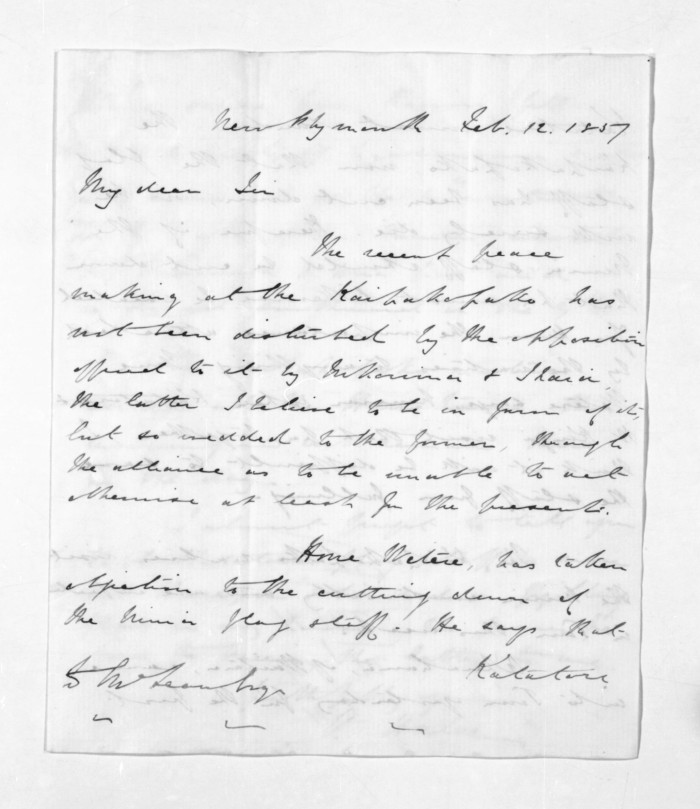 New Plymouth Feb. 12. 1857
My dear Sir
The recent peace
making at the Kaipakopako has
not been disturbed by the opposition
offered to it by Nikorima & Ihaia,
the latter I believe to be in favor of it,
but so wedded to the former, through
the alliance as to be unable to act
otherwise at least for the present.
Hone Watere, has taken
objection to the cutting down of
the Ninia flag staff. He says that
D McLean Esqr
Katatore